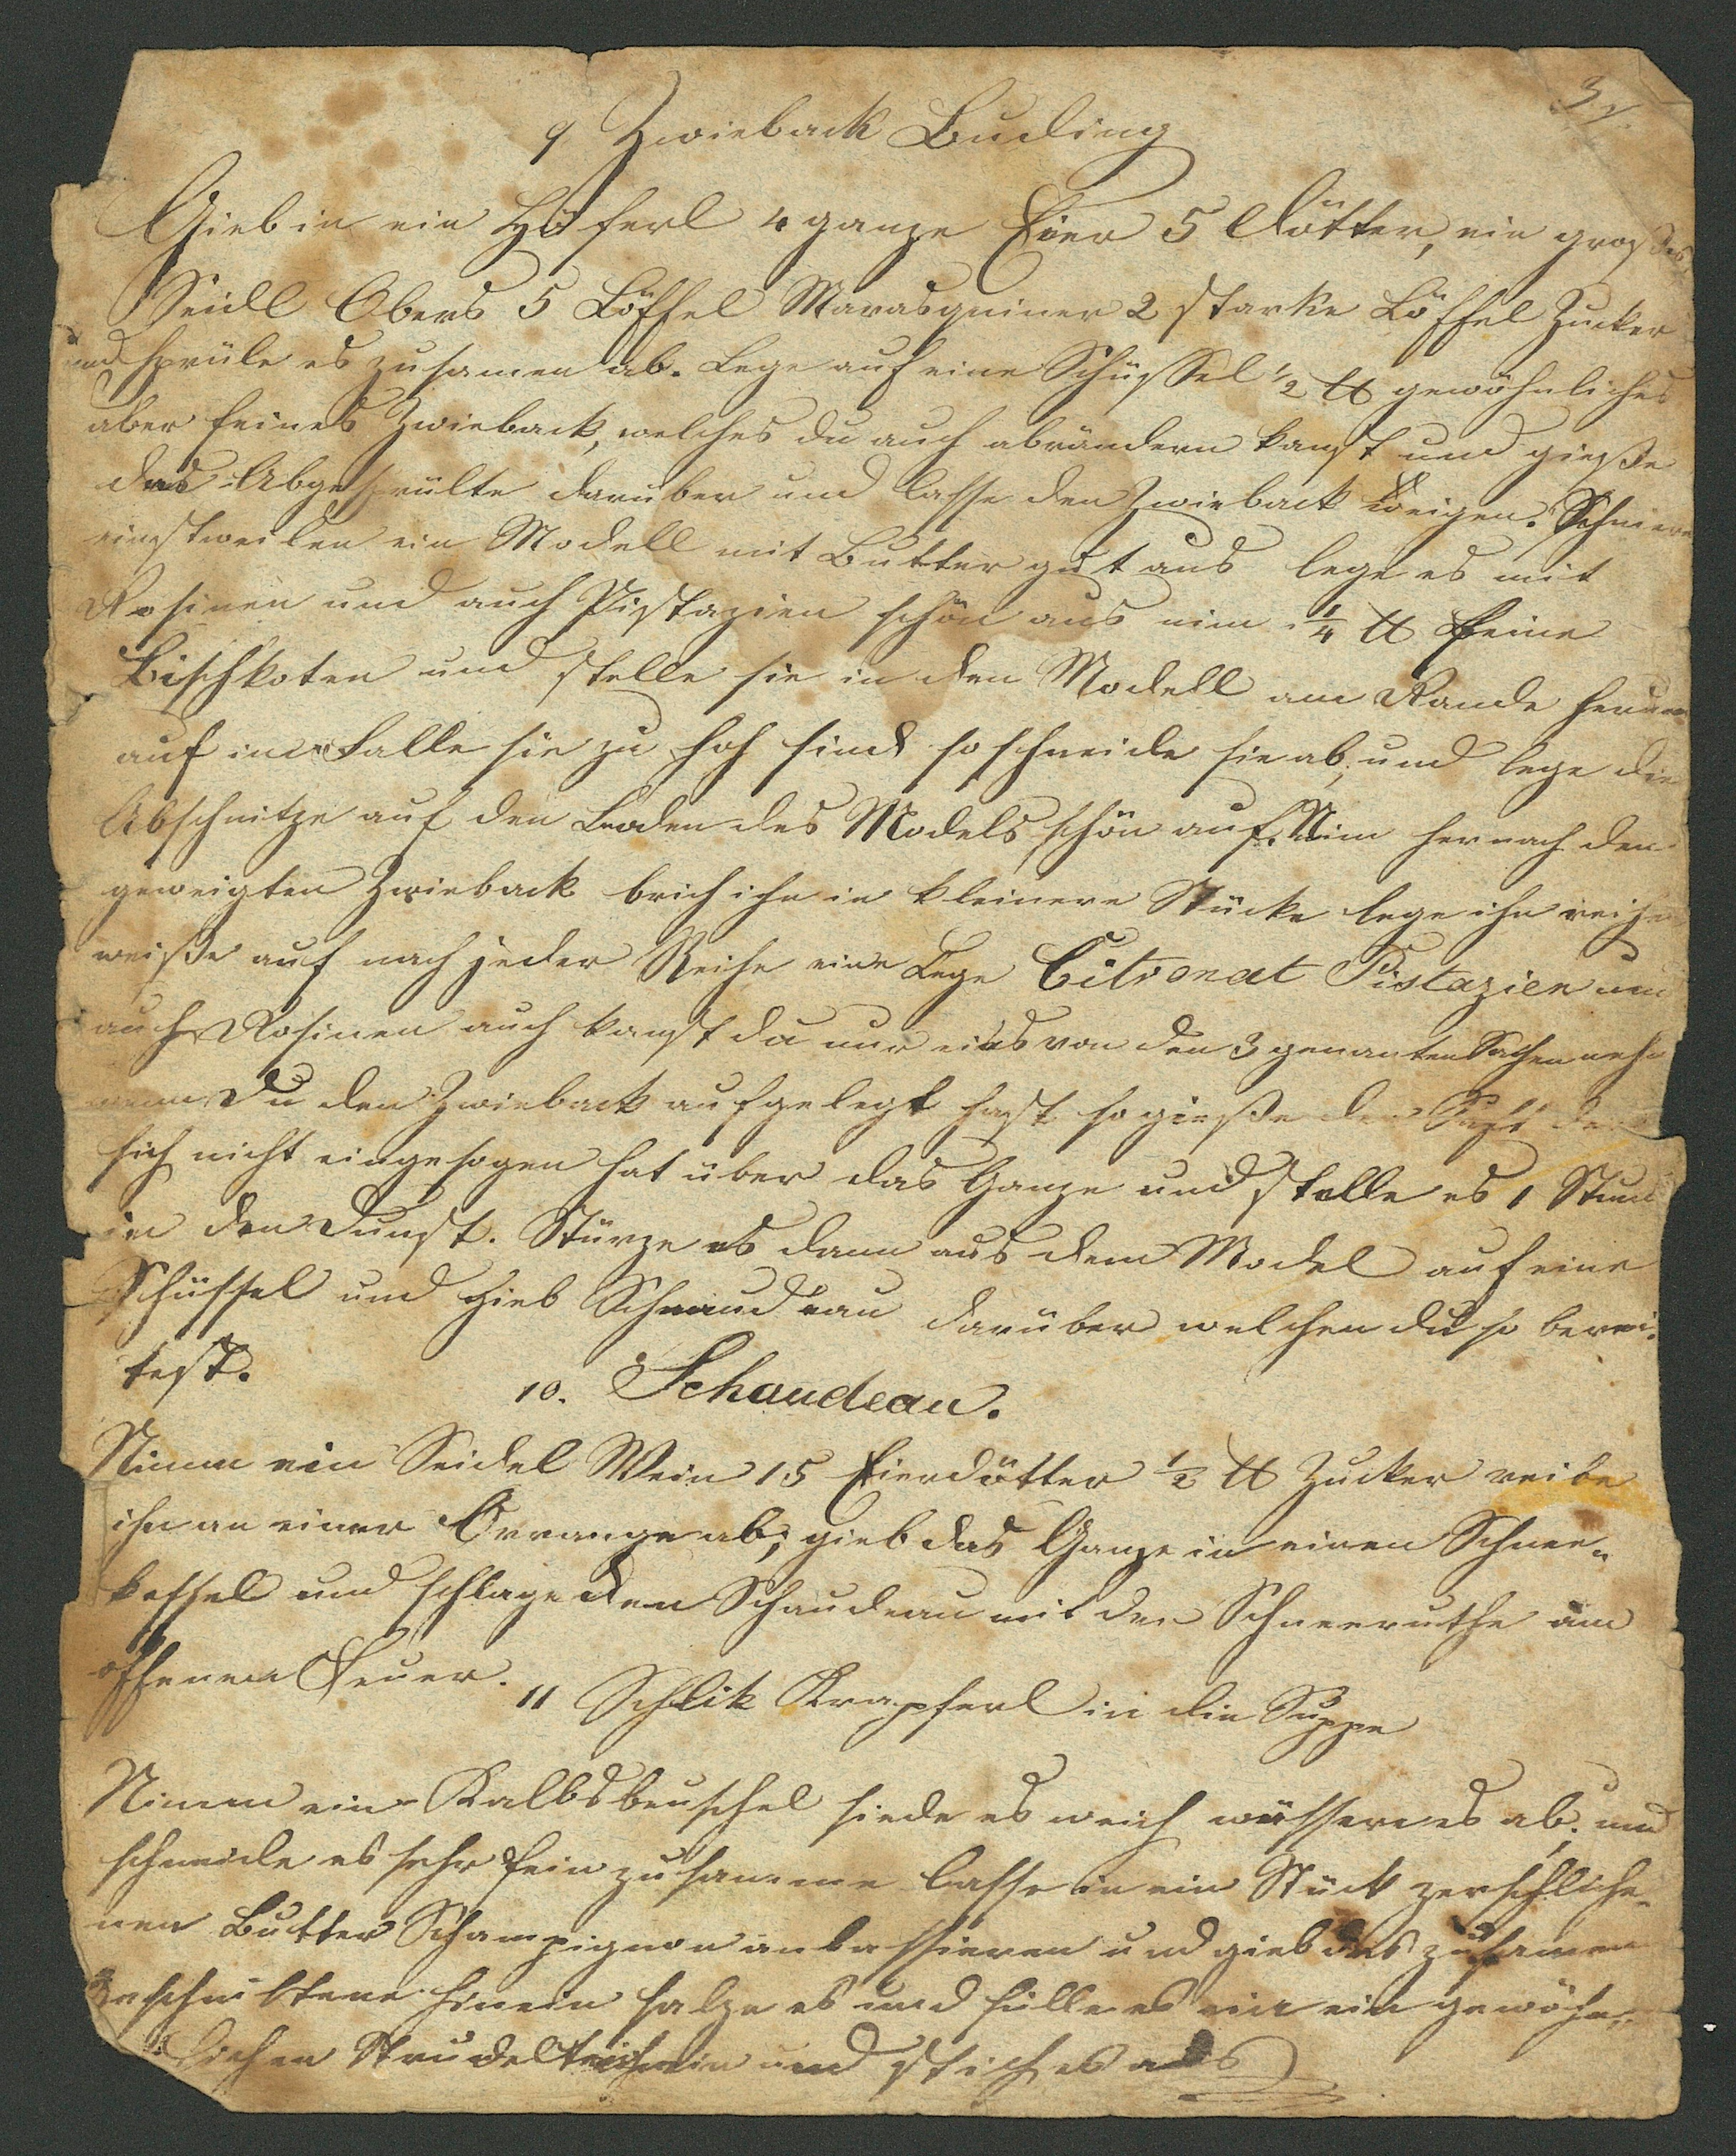 3
9 Zwieback Buding
Gieb in ein Häferl 4 ganze Eier 5 Dötter, ein großes
Seidl Obers 5 Löffel Marasquiner 2 starke Löffel Zucker
und sprüle es zusamen ab. Lege auf eine Schüssel 1/2 ℔ gewöhnliches
aber feines Zwieback, welches du auch abrändern kanst und gieße
das Abgesprülte darüber und lasse den Zwieback weigen. Schmiere
einstweilen ein Modell mit Butter gut aus lege es mit
Rosinen und auch Pistazien schön aus nim 1/4 ℔ feine
Bischkoten und stelle sie in den Modell am Rande herum
auf im Falle sie zu hoh sind so schneide sie ab, und lege die
Abschnitze auf den Boden des Models schön auf. Nim hernach den
geweigten Zwieback brich ihn in kleinere Stücke lege ihn reihe
weiße auf nach jeder Reihe eine Lege Citronat Pistazien und
auch Rosinen auch kanst du nur eins von den 3 genanten Sachen neh
wenn Du den Zwieback aufgelegt hast so gieße den Saft der
sich nicht eingesogen hat über das Ganze und stelle es 1 Stund
in den Dunst. Stürze es dann aus dem Model auf eine
Schüssel und gieb Schaudeau darüber welchen du so berei-
test.
10. Schaudeau.
Nimm ein Seidel Wein 15 Eierdötter 1/2 ℔ Zucker reibe
ihn an einer Orrange ab; gieb das Ganze in einen Schnee-
kessel und schlage den Schaudeau mit der Schneeruthe am
offenen Feuer.
11 Schlik Krapferl in die Suppe
Nimm ein Kalbsbeuschel siede es weich wässere es ab. und
schneide es sehr fein zusamme lasse in ein Stück zerschliche-
nen Butter Schampignon anbassieren und gieb das zusamen
geschnittene hinein salze es und fülle es in ein gewöhn-
lichen Strudelteich ein und stich es aus